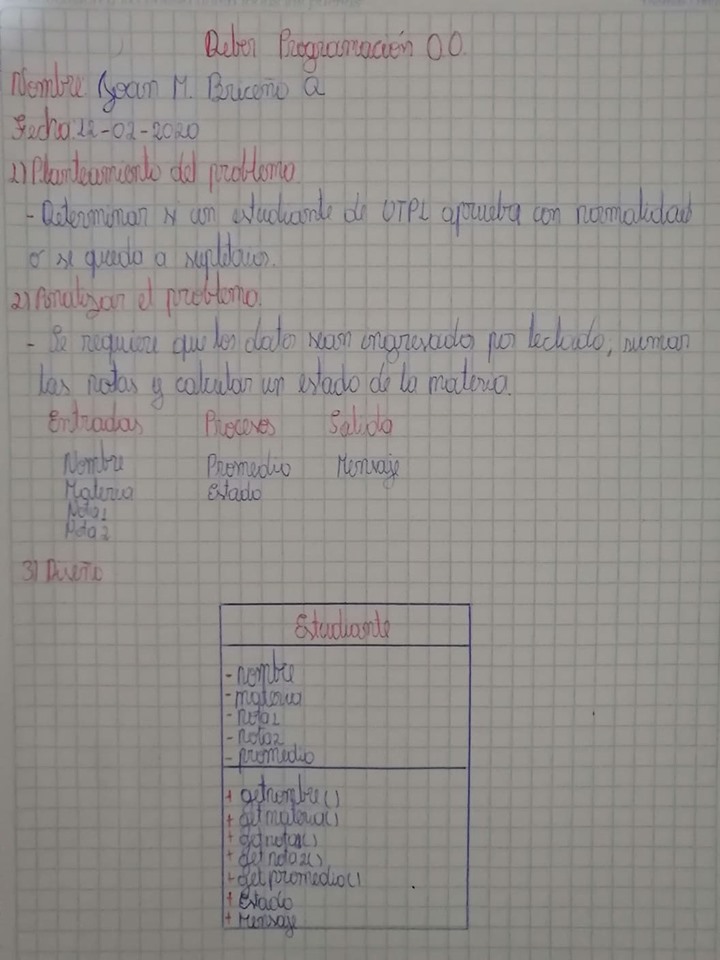 Deber Programación O.O.
Nombre Joan M. Briceño Q
Fecha: 12-02-2020
1) Planteamiento del problema.
- Determinar si un estudiante de UTPL aprueba con normalidad
o se quedo a supletorios.
2) Analizar el problema.
- Se requiere que los datos sean ingresados por teclado, sumar
las notas y calcular un estado de la materia.
Entradas Procesos Salida
Nombre Promedio Mensaje
Materia Estado
Nota1
Nota2
3) Diseño
Estudiante
- nombre
- materia
- nota1
- nota2
- promedio
+ getnombre()
+ getmateria()
+ getnota1()
+ getnota2()
+ getpromedio()
+ Estado
+ Mensaje